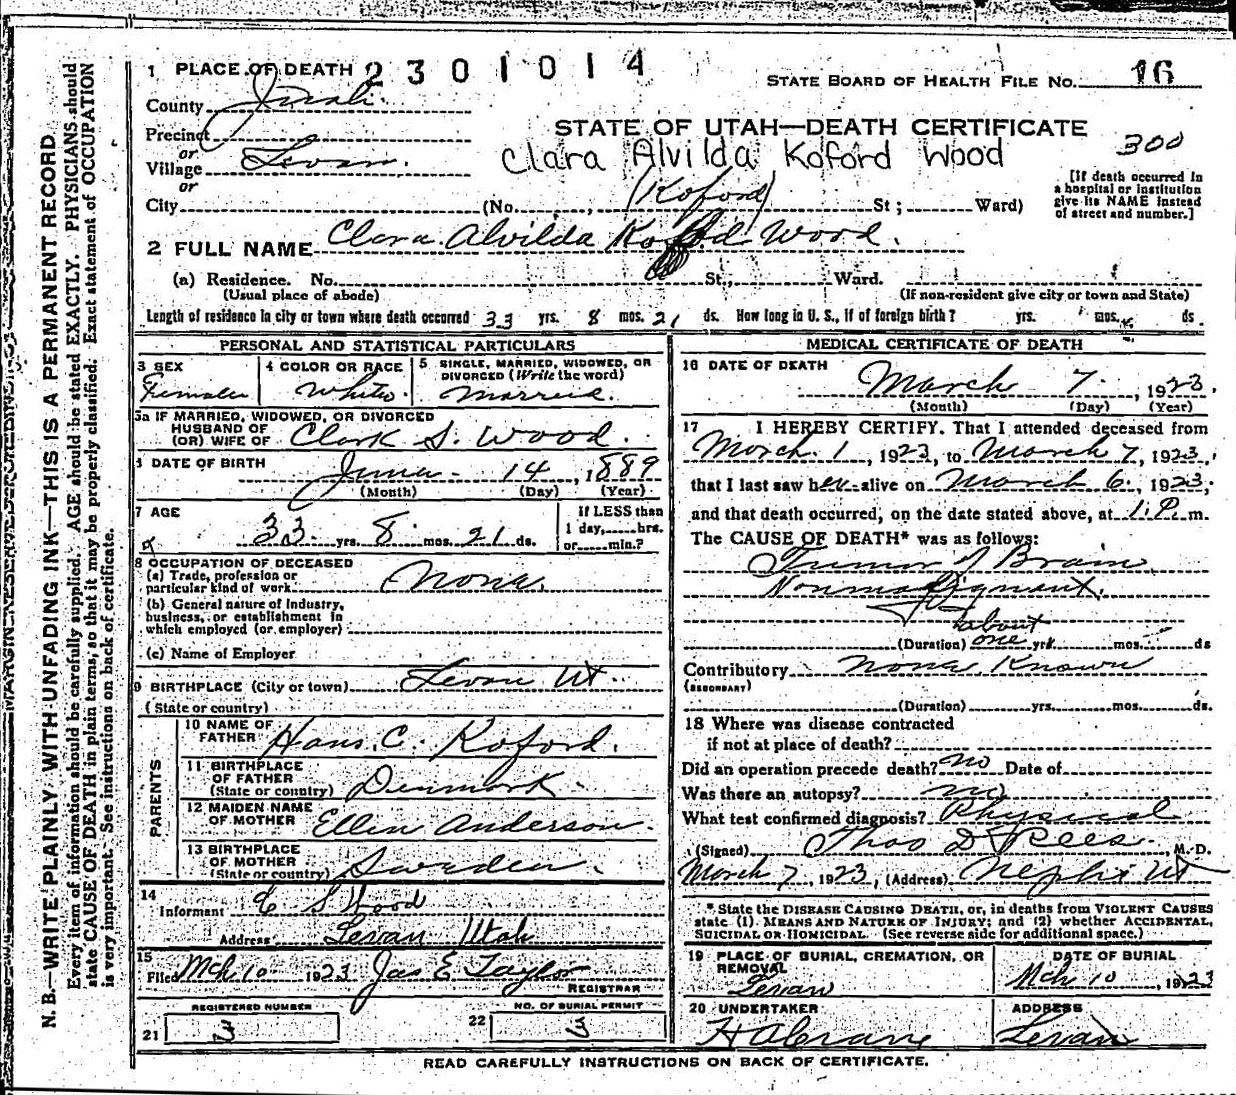 1 PLACE OF DEATH 2301014
STATE BOARD OF HEALTH FILE No. 16
County Juab.
Precinct
or
Village Levan.
or
City (No. , St; Ward)
STATE OF UTAH—DEATH CERTIFICATE
Clara Alvilda Koford Wood 300
(Koford)
[If death occurred in
a hospital or institution
give its NAME instead
of street and number.]
2 FULL NAME Clara Alvilda Koford Wood.
(a) Residence. No. St., Ward.
(Usual place of abode) (If non-resident give city or town and State)
Length of residence in city or town where death occurred 33 yrs. 8 mos. 21 ds. How long in U. S., if of foreign birth? yrs. mos. ds.
PERSONAL AND STATISTICAL PARTICULARS
3 SEX
Female
4 COLOR OR RACE
White
5 SINGLE, MARRIED, WIDOWED, OR
DIVORCED (Write the word)
Married.
5a IF MARRIED, WIDOWED, OR DIVORCED
HUSBAND OF
(OR) WIFE OF Clark S. Wood.
6 DATE OF BIRTH June 14, 1889
(Month) (Day) (Year)
7 AGE
33 yrs. 8 mos. 21 ds.
if LESS than
1 day, hrs.
or min.?
8 OCCUPATION OF DECEASED
(a) Trade, profession or
particular kind of work None.
(b) General nature of Industry,
business, or establishment in
which employed (or employer)
(c) Name of Employer
9 BIRTHPLACE (City or town) Levan Ut.
(State or country)
PARENTS
10 NAME OF
FATHER Hans. C. Koford.
11 BIRTHPLACE
OF FATHER
(State or country) Denmark.
12 MAIDEN NAME
OF MOTHER Ellen Anderson.
13 BIRTHPLACE
OF MOTHER
(State or country) Sweden.
14
Informent C S Wood
Address Levan Utah
15
Filed Mch 10 1923 Jas E Taylor
REGISTRAR
REGISTERED NUMBER
21 3
NO. OF BURIAL PERMIT
22 3
MEDICAL CERTIFICATE OF DEATH
16 DATE OF DEATH
March 7, 1923.
(Month) (Day) (Year)
17 I HEREBY CERTIFY, That I attended deceased from
March 1, 1923, to March 7, 1923,
that I last saw her alive on March 6, 1923,
and that death occurred, on the date stated above, at 1 P. m.
The CAUSE OF DEATH* was as follows:
Tumor of Brain
Nonmalignant.
about
(Duration) one yrs. mos. ds
Contributory None Known
(SECONDARY)
(Duration) yrs. mos. ds.
18 Where was disease contracted
if not at place of death?
Did an operation precede death? no Date of
Was there an autopsy? no
What test confirmed diagnosis? Physical
(Signed) Thos D Rees M. D.
March 7, 1923, (Address) Nephi Ut
* State the DISEASE CAUSING DEATH, or, in deaths from VIOLENT CAUSES
state (1) MEANS AND NATURE OF INJURY; and (2) whether ACCIDENTAL,
SUICIDAL OR HOMICIDAL. (See reverse side for additional space.)
19 PLACE OF BURIAL, CREMATION, OR
REMOVAL
Levan
DATE OF BURIAL
Mch 10, 1923
20 UNDERTAKER
ADDRESS
Levan
READ CAREFULLY INSTRUCTIONS ON BACK OF CERTIFICATE.
MARGIN RESERVED FOR BINDING
N. B.—WRITE PLAINLY WITH UNFADING INK—THIS IS A PERMANENT RECORD
Every item of information should be carefully supplied. AGE should be stated EXACTLY. PHYSICIANS should
state CAUSE OF DEATH in plain terms, so that it may be properly classified. Exact statement of OCCUPATION
is very important. See instructions on back of certificate.